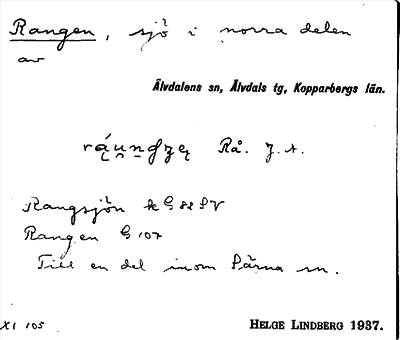 Rangen, sjö i norra delen
av
Älvdalens sn, Älvdals tg, Kopparbergs län.
Rå. J. A.
Rangsjön k G 82 SV
Rangen G 107
Till en del inom Särna sn.
XI 105 HELGE LINDBERG 1937.